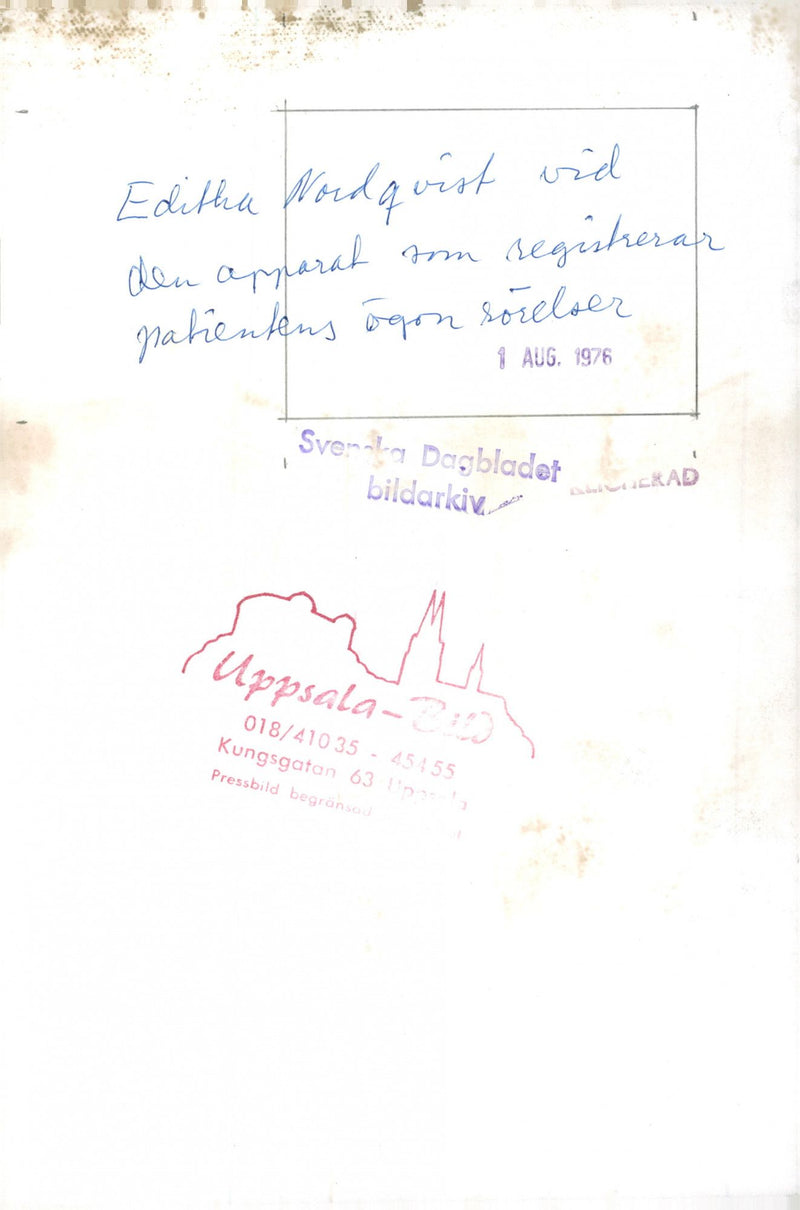 Editha Nordqvist vid
den apparat som registrerar
patientens ögon rörelser
1 AUG. 1976
Svenska Dagbladet
bildarkiv
KLICHERAD
Uppsala-Bild
018/410 35 - 454 55
Kungsgatan 63 Uppsala
Pressbild begränsad